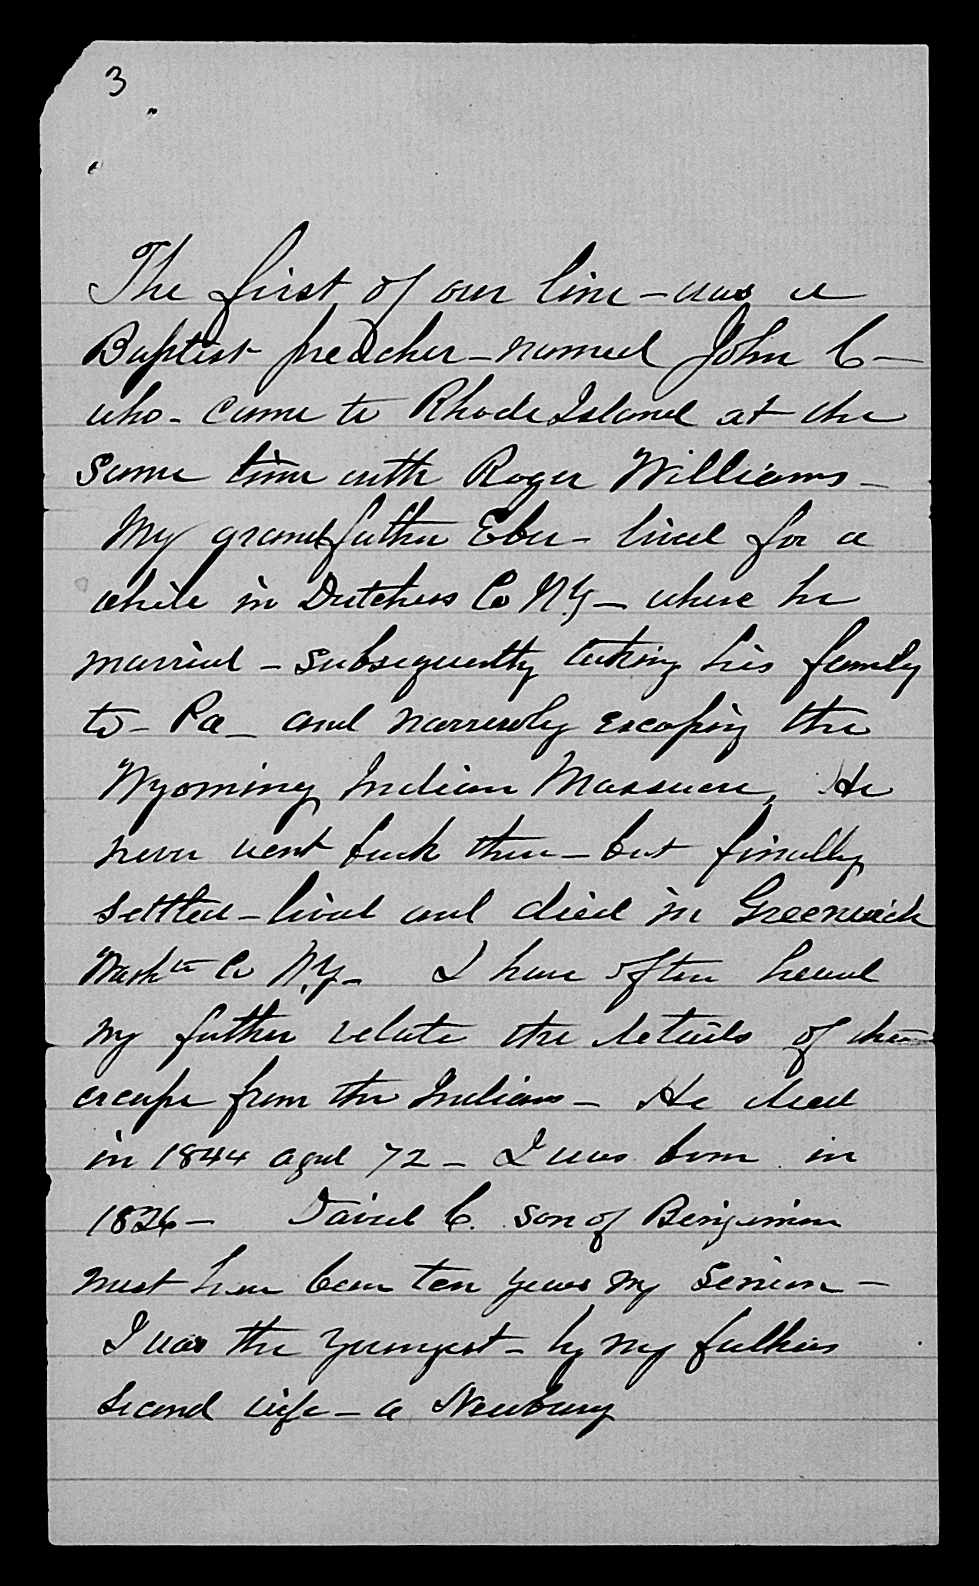 3
The first of our line – was a
Baptist preacher – named John C –
who – came to Rhode Island at the
same time with Roger Williams –
My grandfather Eber – lived for a
while in Dutchess Co N.Y – where he
married – subsequently taking his family
to – Pa – and narrowly escaping the
Wyoming Indian Massacre, He
never went back there – but finally
settled – lived and died in Greenwich
Washtn Co N.Y. – I have often heard
my father relate the details of their
escape from the Indians – He died
in 1844 aged 72 – I was born in
1826 – David C. son of Benjamin
must have been ten years my senior –
I was the youngest – by my fathers
second wife – a Newbury